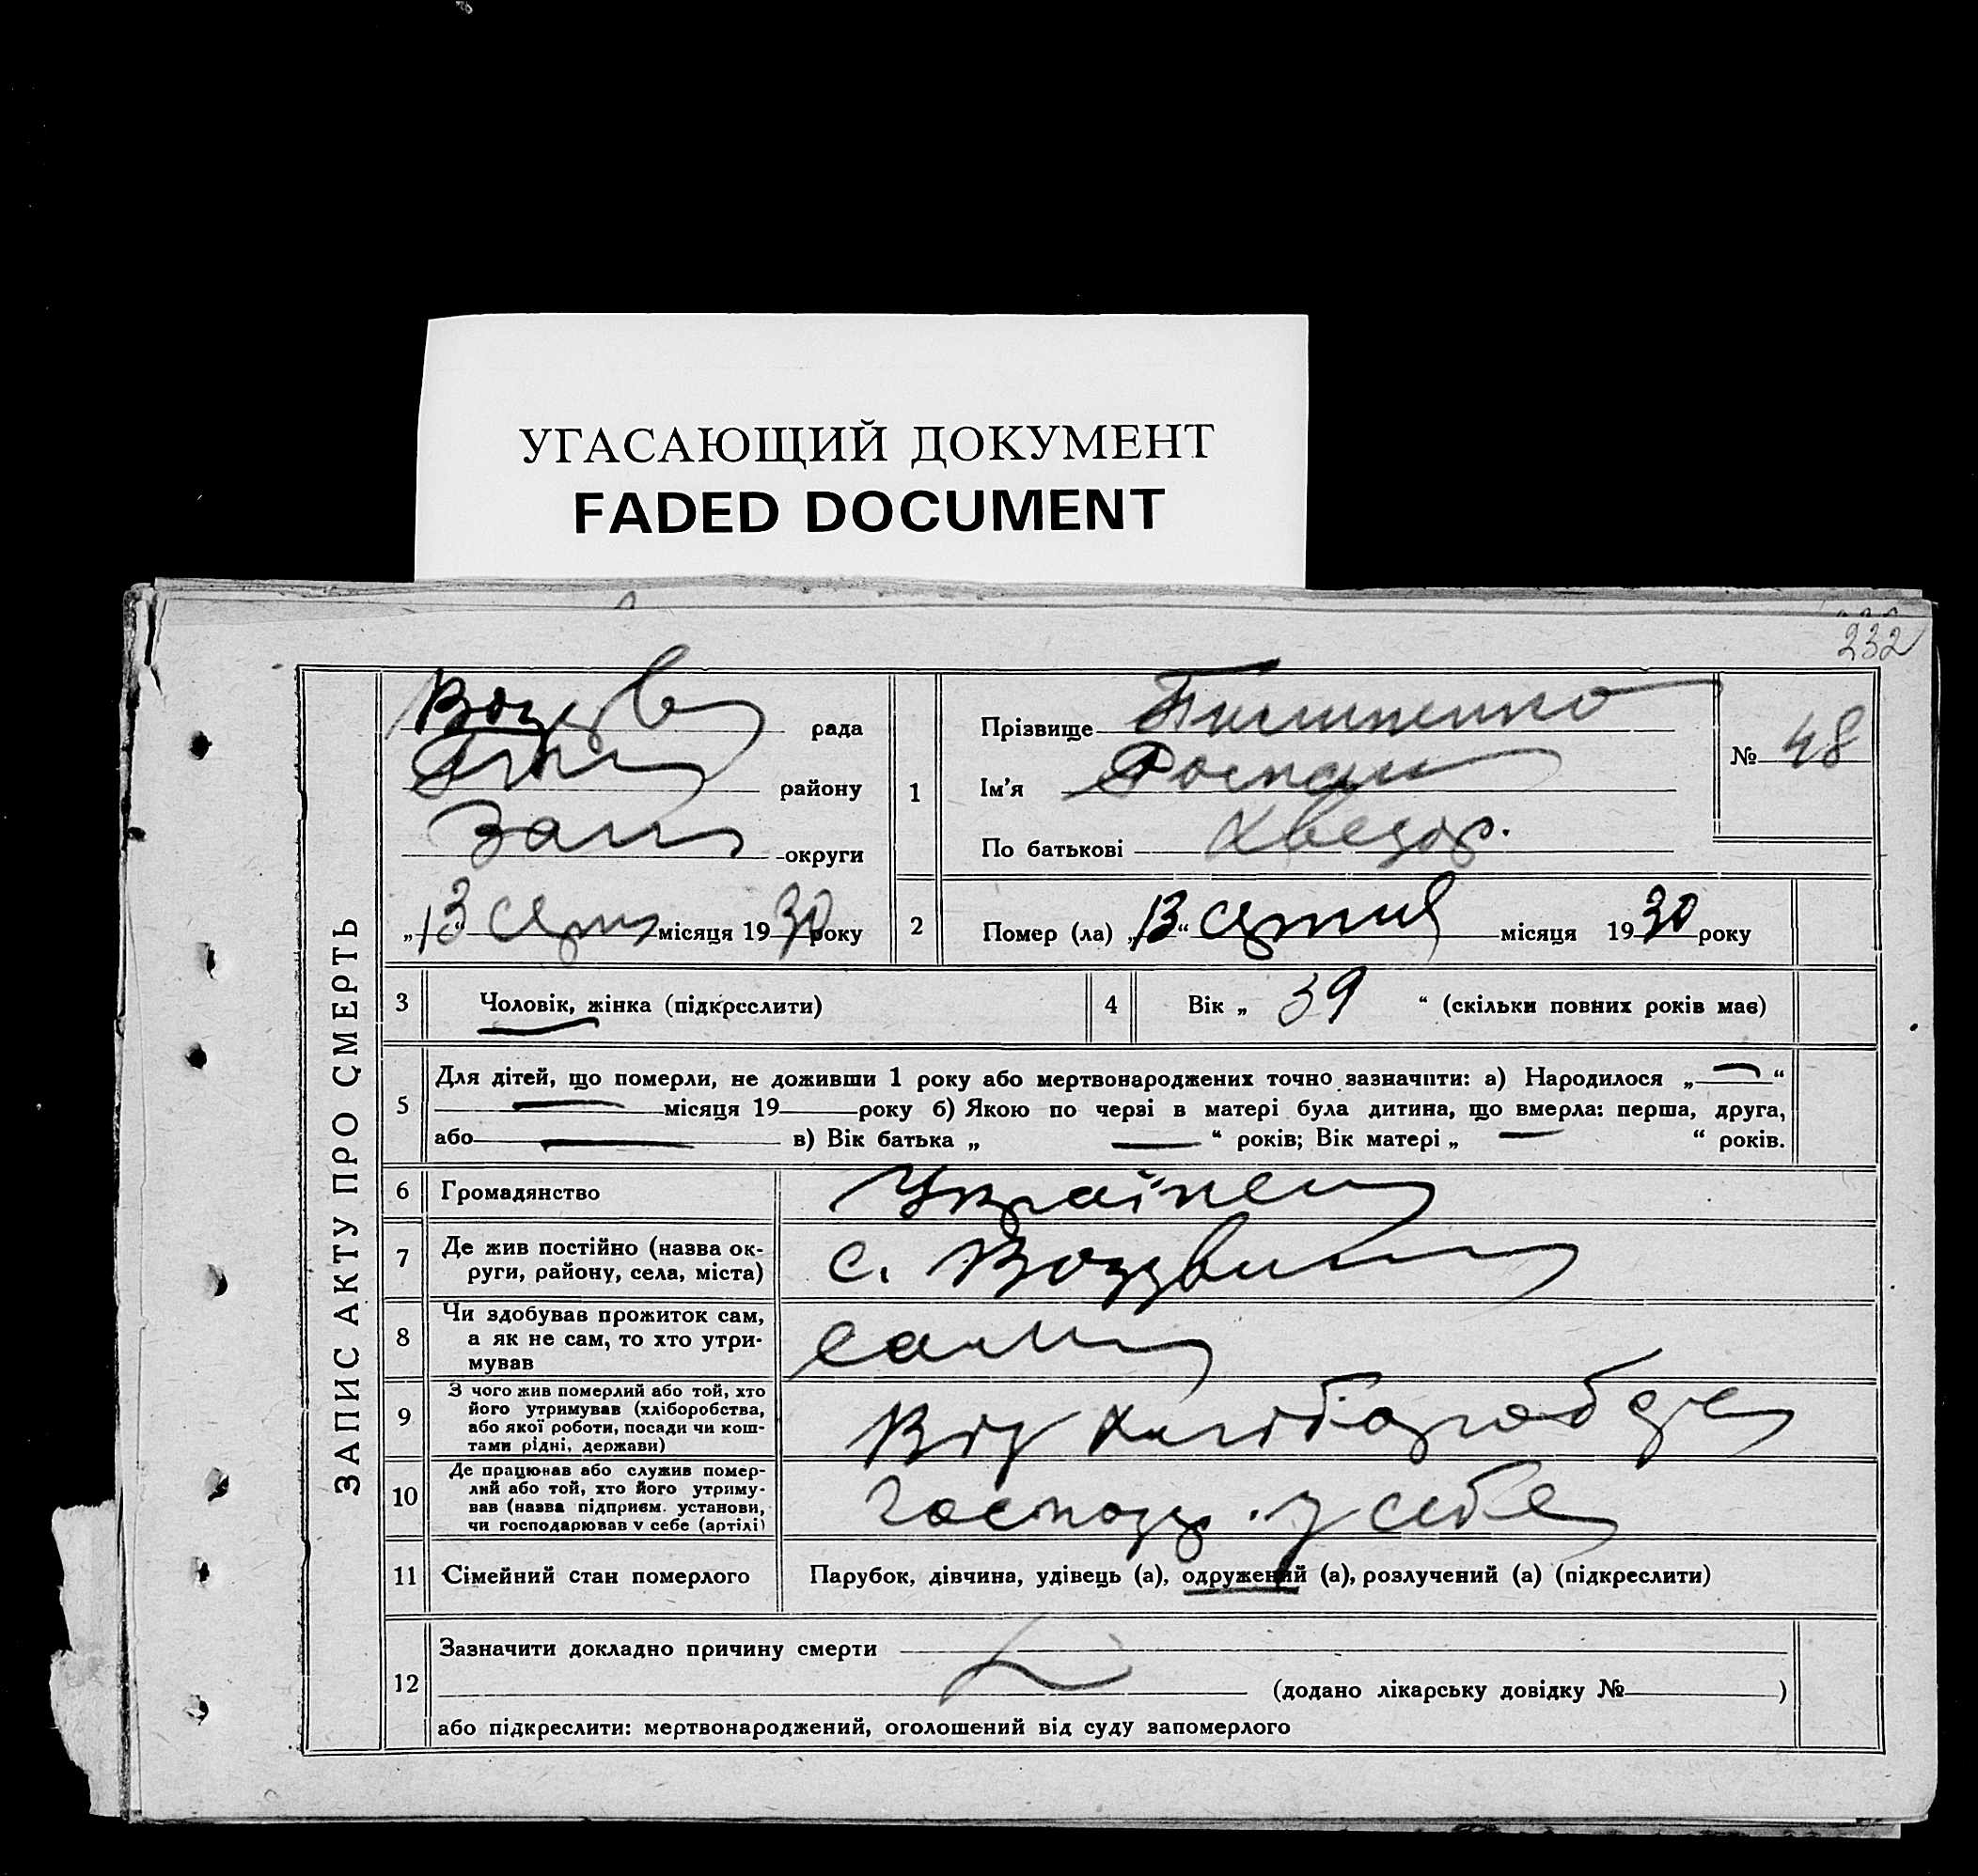 УГАСАЮЩИЙ ДОКУМЕНТ
FADED DOCUMENT
232
ЗАПИС АКТУ ПРО СМЕРТЬ
рада
району
округи
„13“ місяця 1930 року
1
Прізвище
Ім’я
По батькові Хведор.
№ 48
2
Помер (ла) „13“ місяця 1930 року
3
Чоловік, жінка (підкреслити)
4
Вік „39“ (скільки повних років має)
5
Для дітей, що померли, не доживши 1 року або мертвонароджених точно зазначити: а) Народилося „—“
місяця 19 року б) Якою по черзі в матері була дитина, що вмерла: перша, друга,
або — в) Вік батька „ — “ років; Вік матері „ — “ років.
6
Громадянство
Українець
7
Де жив постійно (назва ок-
руги, району, села, міста)
с. Воздвиж
8
Чи здобував прожиток сам,
а як не сам, то хто утри-
мував
сам
9
З чого жив померлий або той, хто
його утримував (хліборобства,
або якої роботи, посади чи кош-
тами рідні, держави)
Від
10
Де працював або служив помер-
лий або той, хто його утриму-
вав (назва підприєм. установи,
чи господарював у себе (артілі)
господ. у себе
11
Сімейний стан померлого
Парубок, дівчина, удівець (а), одружений (а), розлучений (а) (підкреслити)
12
Зазначити докладно причину смерти
(додано лікарську довідку № )
або підкреслити: мертвонароджений, оголошений від суду запомерлого